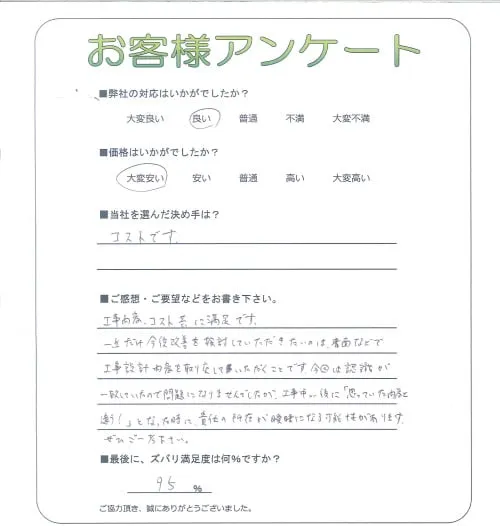 お客様アンケート
■弊社の対応はいかがでしたか？
大変良い 良い 普通 不満 大変不満
■価格はいかがでしたか？
大変安い 安い 普通 高い 大変高い
■当社を選んだ決め手は？
コストです。
■ご感想・ご要望などをお書き下さい。
工事内容、コスト共に満足です。
一点だけ今後改善を検討していただきたいのは、書面などで
工事設計内容を取り交して いただくことです 今回は認識が
一致していたので問題になりませんでしたが、工事中い後に「思っていた内容と
違う！」となった時に、責任の所在が曖昧になる可能性があります。
ぜひご一考下さい。
■最後に、ズバリ満足度は何％ですか？
95 ％
ご協力頂き、誠にありがとうございました。